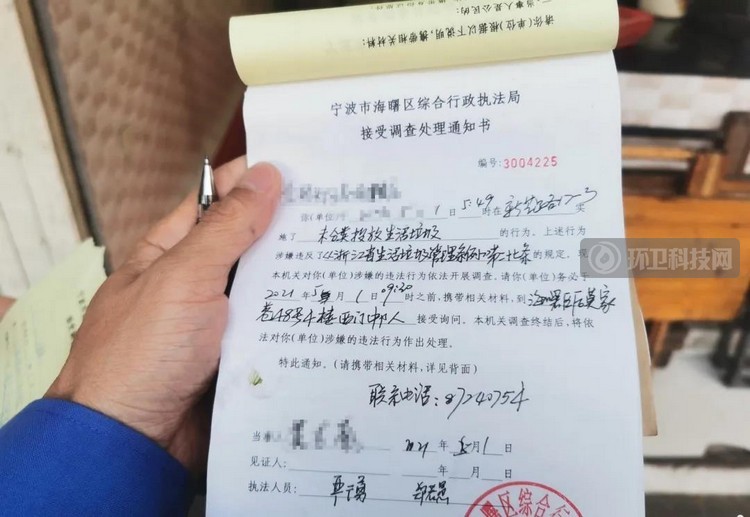 一、当事人是公民的：
请你(单位)根据以下说明，携带相关材料：
宁波市海曙区综合行政执法局
接受调查处理通知书
编号：3004225
你(单位)于 1日 5:49 时在 实
施了 投放生活垃圾 的行为。上述行为
涉嫌违反了《浙江省生活垃圾管理条例》 的规定。现
本机关对你(单位)涉嫌的违法行为依法开展调查。请你(单位)务必于
2021年5月1日09:30时之前，携带相关材料，到海曙区莫家
巷48号4楼 接受询问。本机关调查终结后，将依
法对你(单位)涉嫌的违法行为作出处理。
特此通知。(请携带相关材料，详见背面)
联系电话：87240754
当事 2021年5月1日
见证人： 年 月 日
执法人员：
曙区综合行
环卫科技网